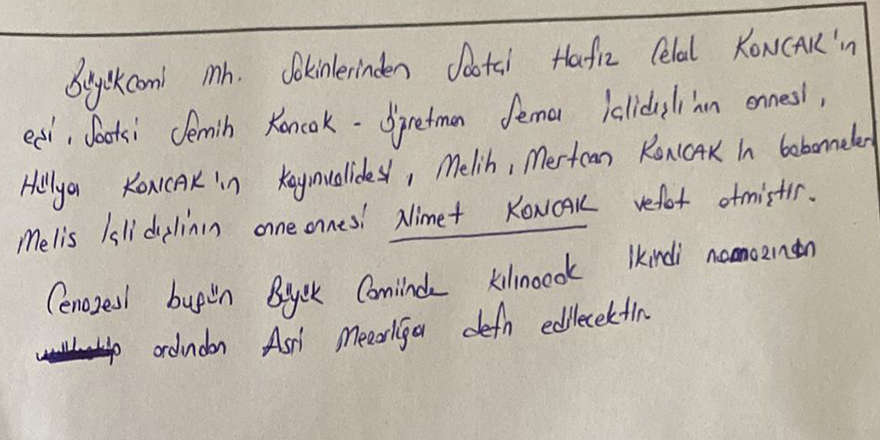 Büyükcami mh. Sakinlerinden Saatçi Hafız Celal KONCAK'ın
eşi, Saatçi Semih Koncak - Öğretmen Sema İçlidışlı'nın annesi,
Hülya KONCAK'ın Kayınvalidesi, Melih, Mertcan KONCAK ın babanneleri
Melis İçli dışlının anneannesi Nimet KONCAK vefat etmiştir.
Cenazesi bugün Büyük Camiinde kılınacak İkindi namazından
ardından Asri Mezarlığa defn edilecektir.